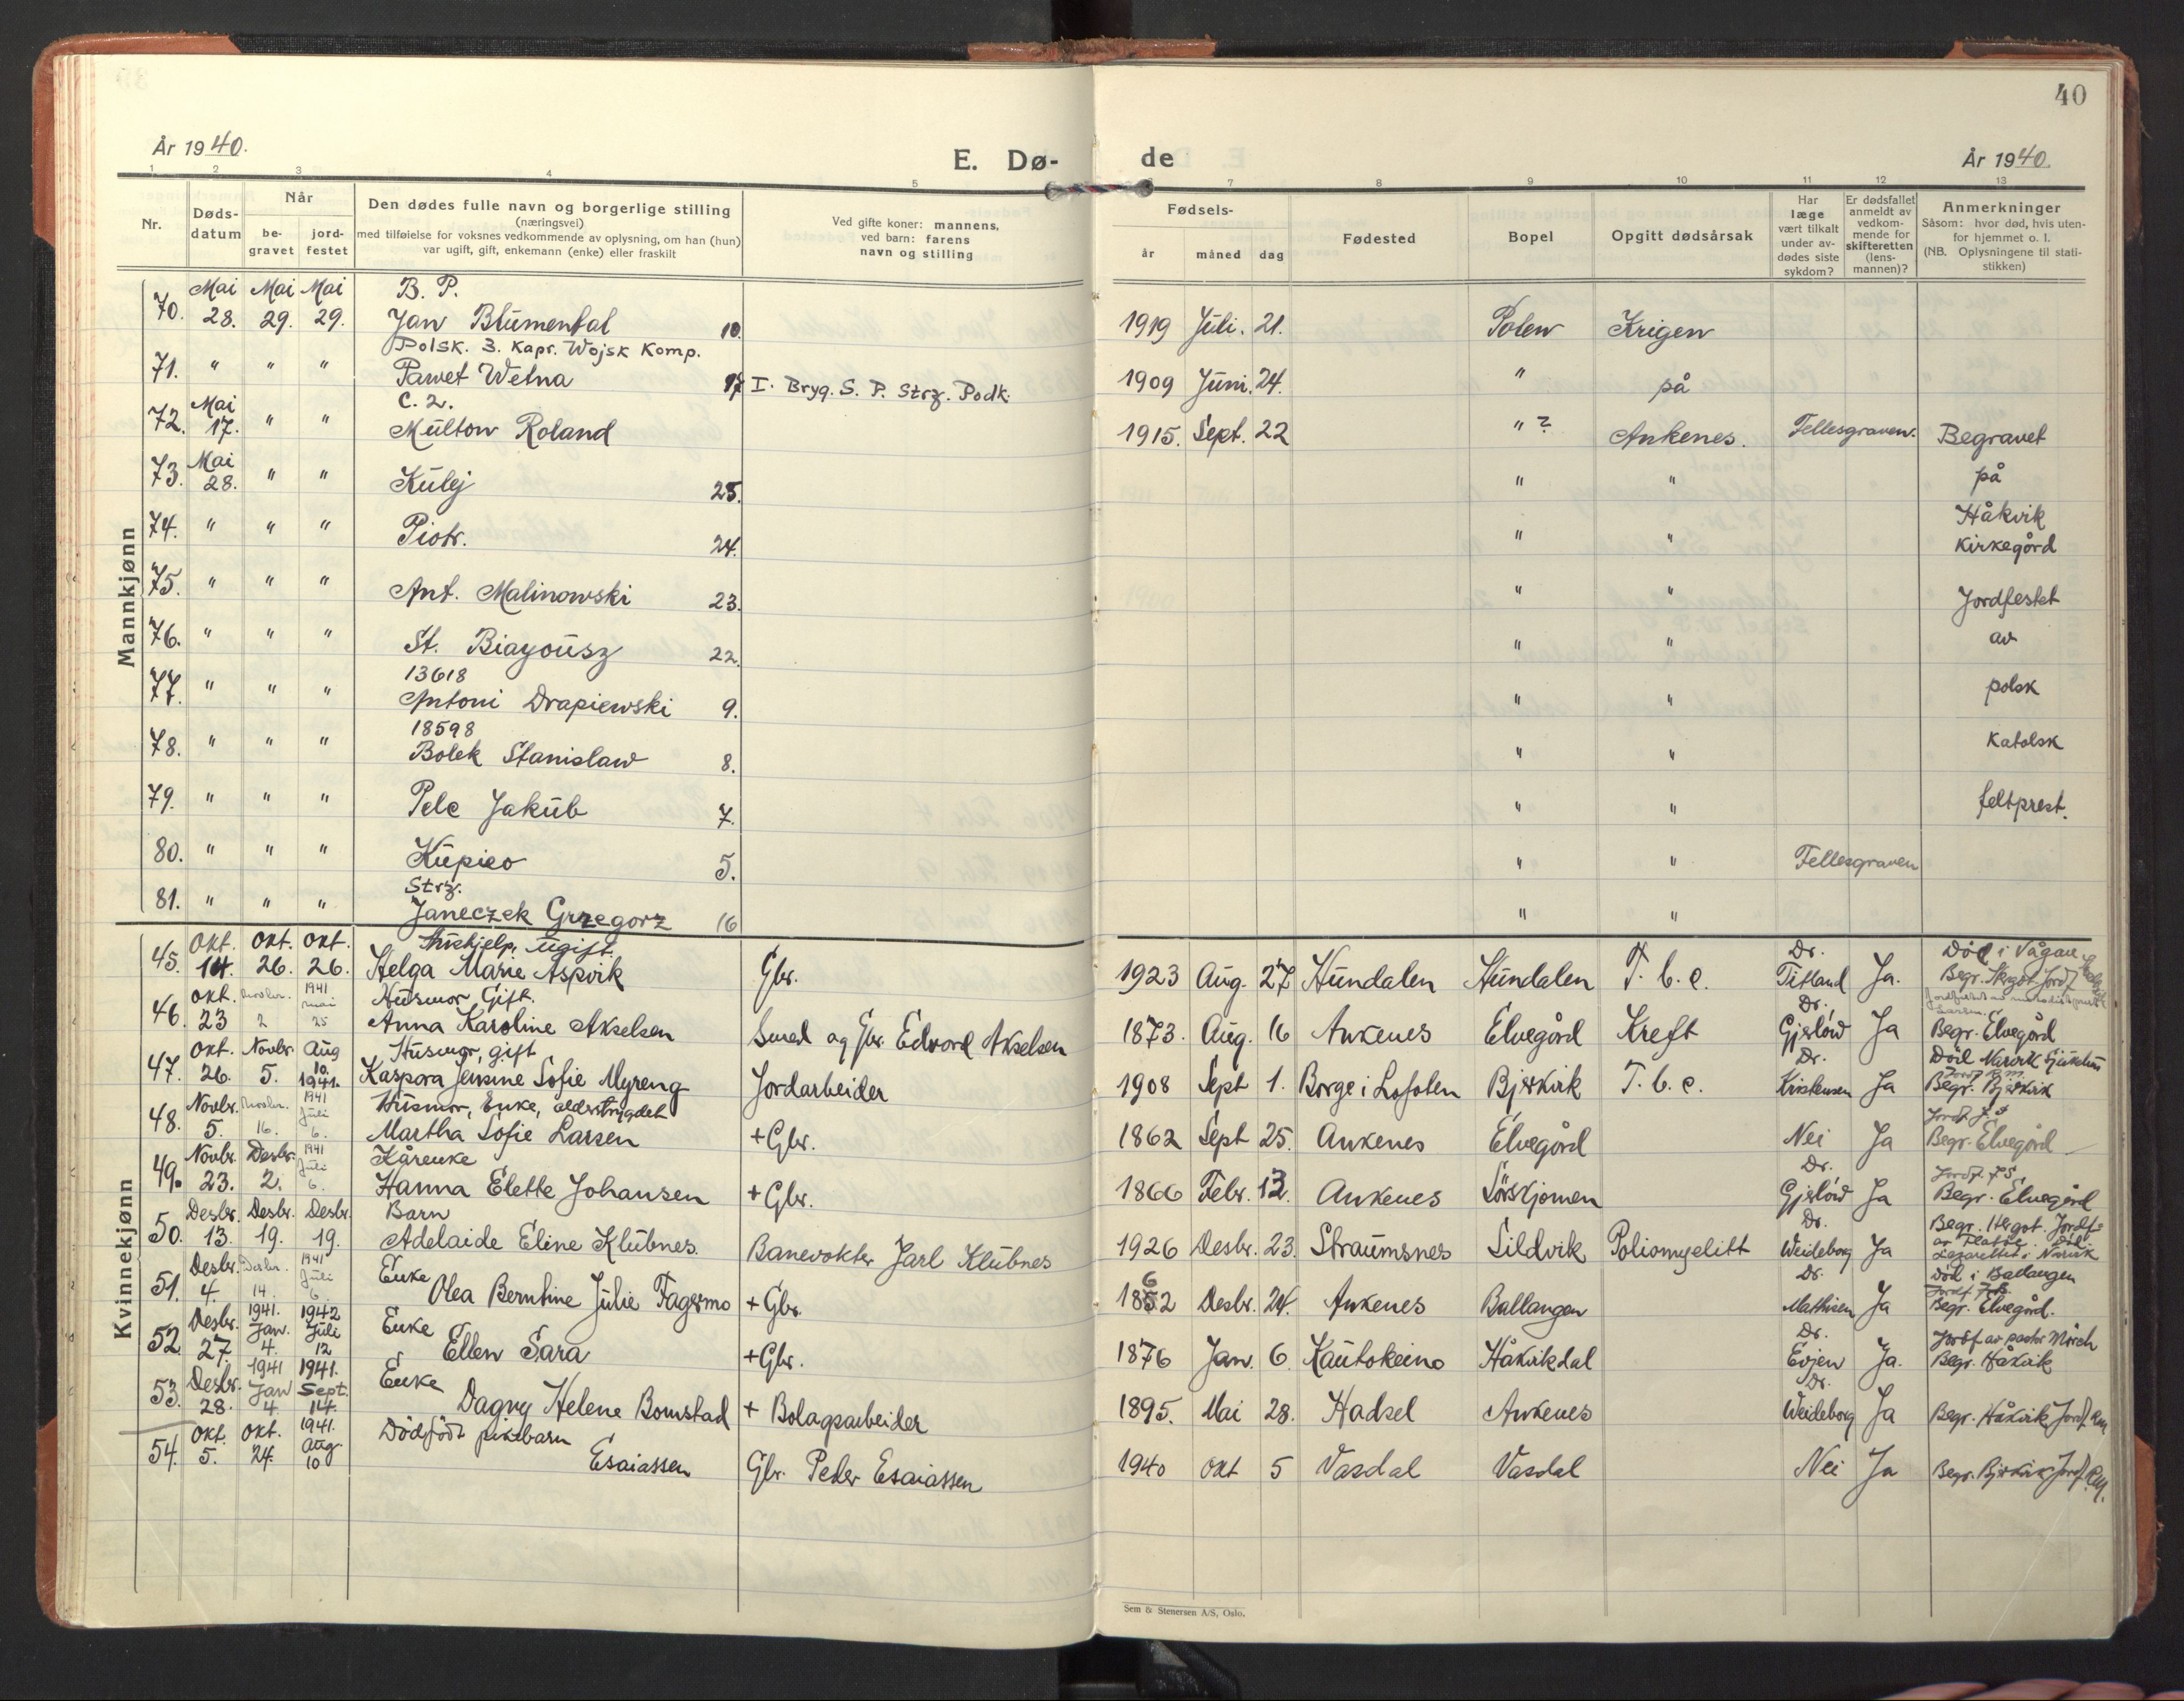 40
År 1940.
E. Dø-
de
År 1940.
1 2 3 4 5 6 7 8 9 10 11 12 13
Nr.
Døds-
datum
Når
be-
gravet
jord-
festet
Den dødes fulle navn og borgerlige stilling
(næringsvei)
med tilføielse for voksnes vedkommende av oplysning, om han (hun)
var ugift, gift, enkemann (enke) eller fraskilt
Ved gifte koner: mannens,
ved barn: farens
navn og stilling
Fødsels-
år måned dag
Fødested
Bopel
Opgitt dødsårsak
Har
læge
vært tilkalt
under av-
dødes siste
sykdom?
Er dødsfallet
anmeldt av
vedkom-
mende for
skifteretten
(lens-
mannen)?
Anmerkninger
Såsom: hvor død, hvis uten-
for hjemmet o. l.
(NB. Oplysningene til stati-
stikken)
Mannkjønn
Mai Mai Mai B. P.
70. 28. 29. 29. Jan Blumental 10. 1919 Juli. 21. Polen Krigen
Polsk. 3. Kapr. Wojsk Komp.
71. " " " Pawet Wetna 17 I. Bryg. S. P. Strz. Podk. 1909 Juni. 24. " på
Mai C. 2.
72. 17. " " Multon Roland 1915. Sept. 22 " ? Ankenes. Fellesgraven. Begravet
Mai
73. 28. " " Kulej 25. " " på
Håkvik
74. " " " Piotr. 24. " " Kirkegård
75. " " " Ant. Malinowski 23. " " Jordfestet
76. " " " St. Biayousz 22. " " av
13618
77. " " " Antoni Drapiewski 9. " " polsk
18598
78. " " " Bolek Stanislaw 8. " " Katolsk
79. " " " Pele Jakub 7. " " feltprest.
80. " " " Kupieo 5. " " Fellesgraven
Strz.
81. " " " Janeczek Grzegorz 16 " "
Kvinnekjønn
Okt. Okt. Okt. Hushjelp, ugift. Dr. Död i Vågan
45. 14. 26. 26. Helga Marie Aspvik Gbr. 1923 Aug. 27 Hundalen Hundalen T. b. c. Titland Ja. Begr. Hergot Jordf.
Okt. Novbr. 1941 mai Husmor, Gift. Dr.
46. 23 2 25 Anna Karoline Akselsen Smed og Gbr. Edvard Akselsen 1873. Aug. 16 Ankenes Elvegård Kreft Gjerlöw Ja Begr. Elvegård
Okt. Novbr. Aug Husmor, gift Dr. Död Narvik Sjukehus
47. 26. 5. 10. 1941. Kaspara Jensine Sofie Myreng Jordarbeider 1908 Sept 1. Borge i Lofoten Bjerkvik T. b. c. Kristensen Ja Begr. Bjerkvik
Novbr. Novbr. 1941 Juli Husmor, Enke, alderstrygdet
48. 5. 16. 6. Martha Sofie Larsen + Gbr. 1862 Sept 25. Ankenes Elvegård Nei Ja Begr. Elvegård
Novbr. Desbr. 1941 Juli Kårenke Dr. Jordf. F. S.
49. 23. 2. 6. Hanna Elette Johansen + Gbr. 1866 Febr. 12. Ankenes Sörskjomen Gjerlöw Ja Begr. Elvegård
Desbr. Desbr. Desbr. Barn Dr. Begr. Hergot. Jordf.
50. 13. 19. 19. Adelaide Eline Klubnes. Banevokter Jarl Klubnes 1926 Desbr. 23. Straumsnes Sildvik Poliomyelitt Weideborg Ja Lazarettet i Narvik
Desbr. Desbr. 1941 Juli Enke Dr. Död i Ballangen
51. 4. 14. 6. Olea Berntine Julie Fagermo + Gbr. 1862 Desbr. 24. Ankenes Ballangen Mathisen Ja Begr. Elvegård.
Desbr. 1941. Jan. 1942 Juli Enke Dr. Jordf. av pastor Mörch
52. 27. 4. 12 Ellen Sara + Gbr. 1876 Jan. 6. Kautokeino Håkvikdal Evjen Ja. Begr. Håkvik
Desbr. 1941 Jan 1941. Sept. Enke Dr.
53. 28. 4. 14. Dagny Helene Bomstad + Bolagsarbeider 1895. Mai 28. Hadsel Ankenes Weideborg Ja Begr. Håkvik Jordf. RM
Okt. Okt. 1941. Aug. Dödfödt pikebarn
54. 5. 24. 10 Esaiassen Gbr. Peder Esaiassen 1940 Okt 5 Vasdal Vasdal Nei Ja Begr. Bjerkvik Jordf. RM.
Sem & Stenersen A/S, Oslo.